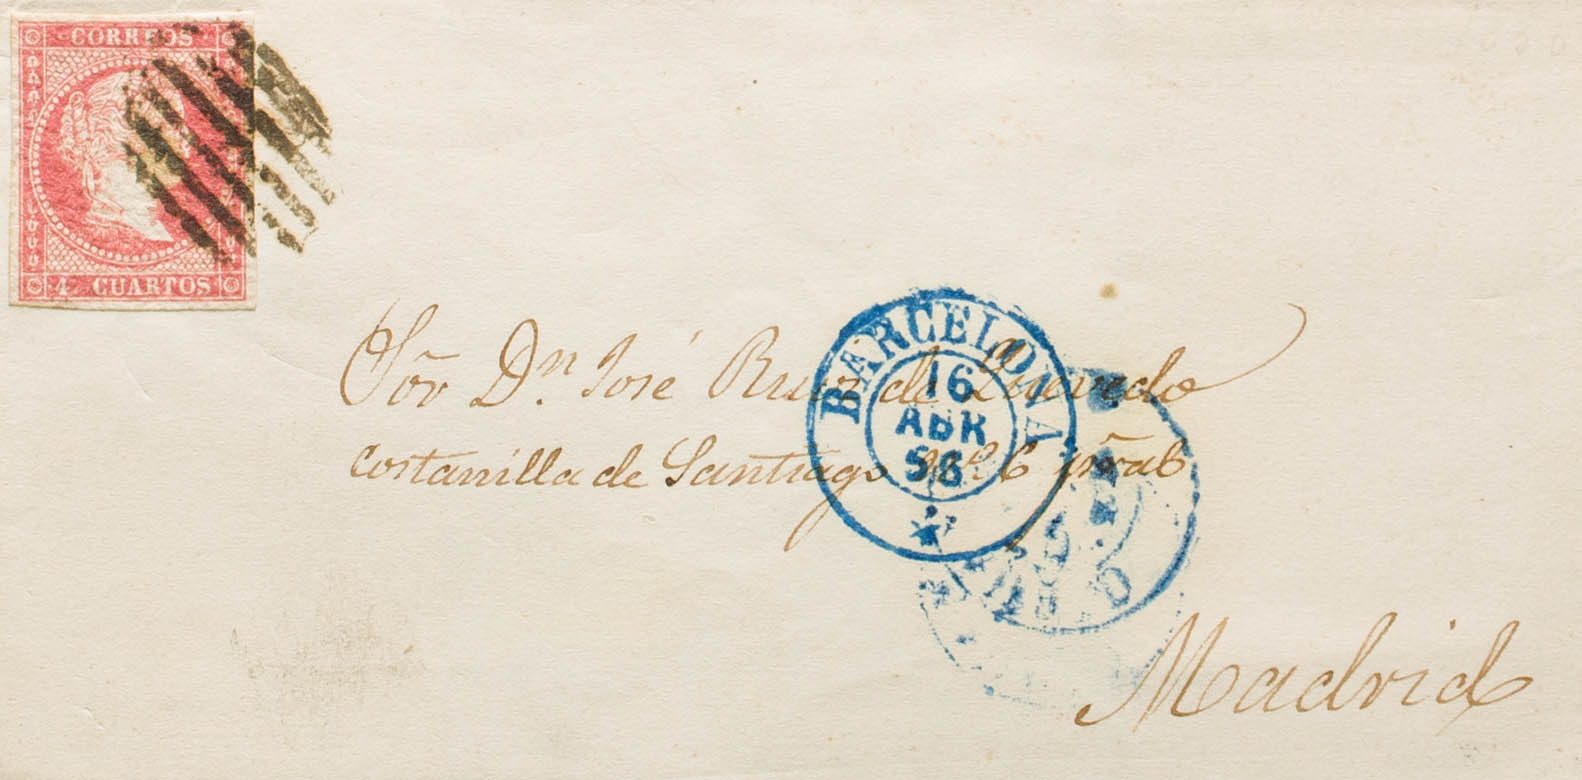 CORREOS
4 CUARTOS
BARCELONA
16
ABR
58
Sor. Dn. José Ruiz de Quevedo
costanilla de Santiago nº 6 pral
Madrid